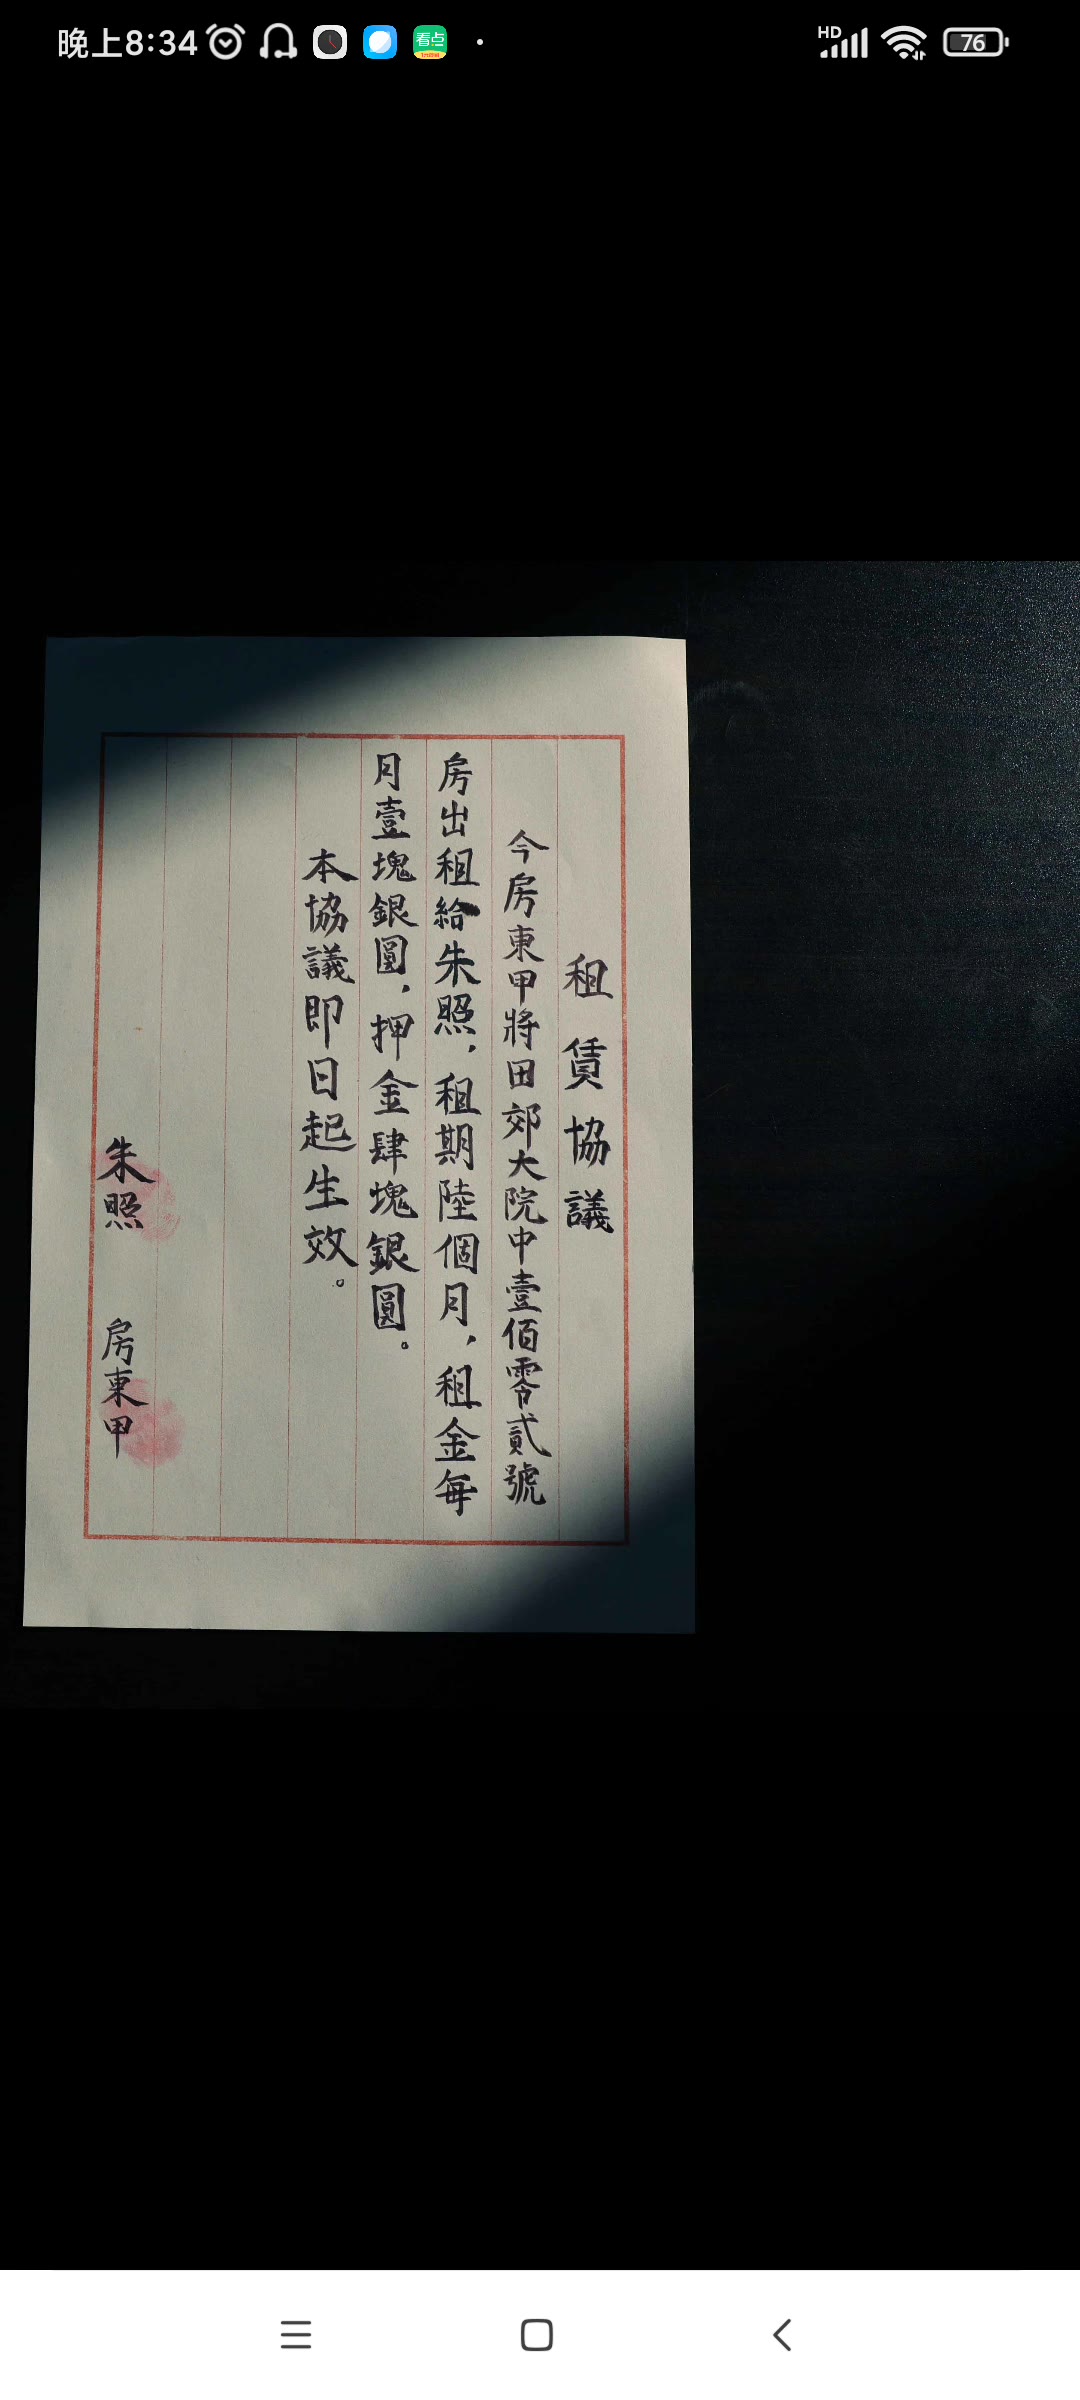 晚上8:34
HD
76
看点
租賃協議
今房東甲將田郊大院中壹佰零貳號
房出租給朱照，租期陸個月，租金每
月壹塊銀圓，押金肆塊銀圓。
本協議即日起生效。
朱照 房東甲